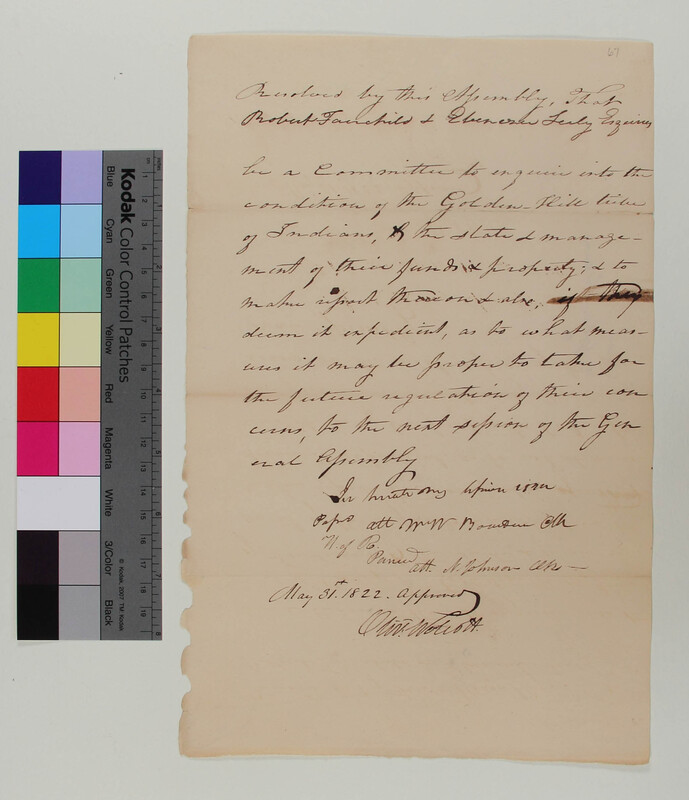 Resolved by this Assembly, That
Robert Fairchild & Ebenezer Seely Esquires
be a Committee to enquire into the
condition of the Golden-Hill tribe
of Indians, & the state & manage-
ment of their funds & property; & to
make report thereon & also, if they
deem it expedient, as to what meas-
ures it may be proper to take for
the future regulation of their con
cerns, to the next session of the Gen
eral Assembly
Pass'd att
Clk
H. of R.
Passed
att. N. Johnson Clk
May 31st. 1822. Approved
Oliv. Wolcott.
Kodak Color Control Patches
Blue
Cyan
Green
Yellow
Red
Magenta
White
3/Color
Black
© Kodak, 2007 TM: Kodak